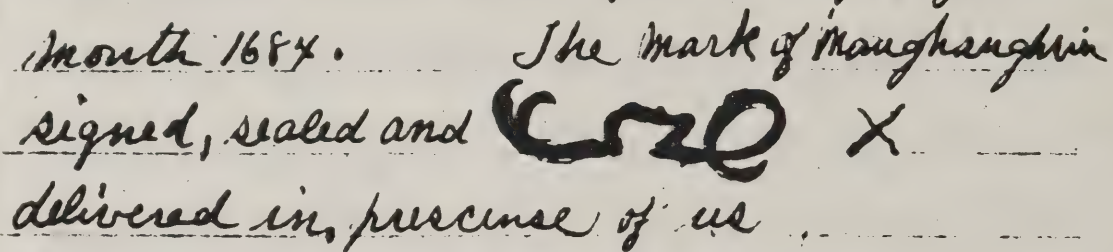 month 1684. The mark of Maughaughsin
signed, sealed and X
delivered in, prescense of us